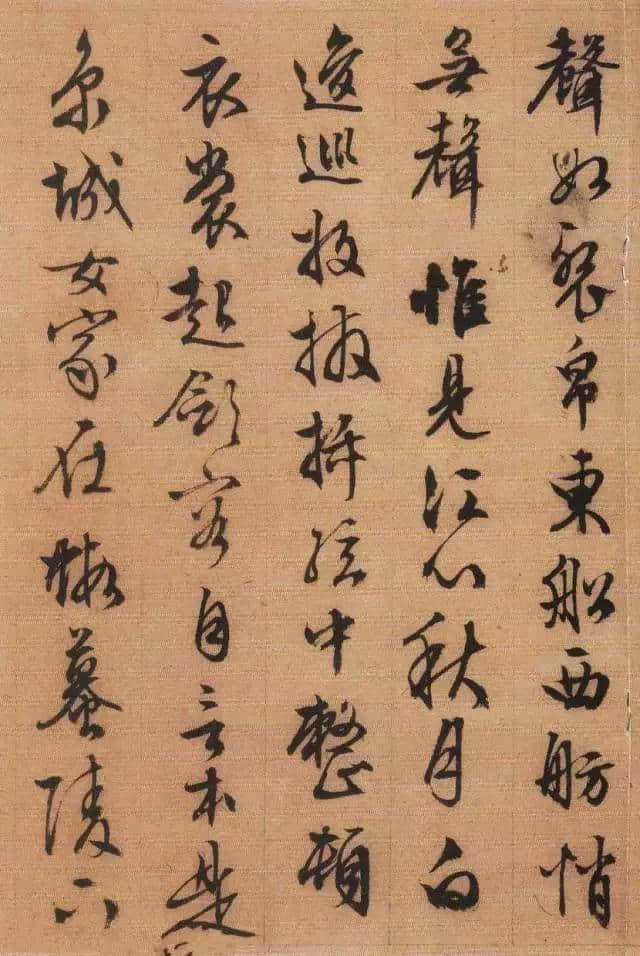 聲如裂帛東船西舫悄
無聲惟見江心秋月白
逡巡放撥插絃中整頓
衣裳起斂容自言本是
京城女家在蝦蟇陵下